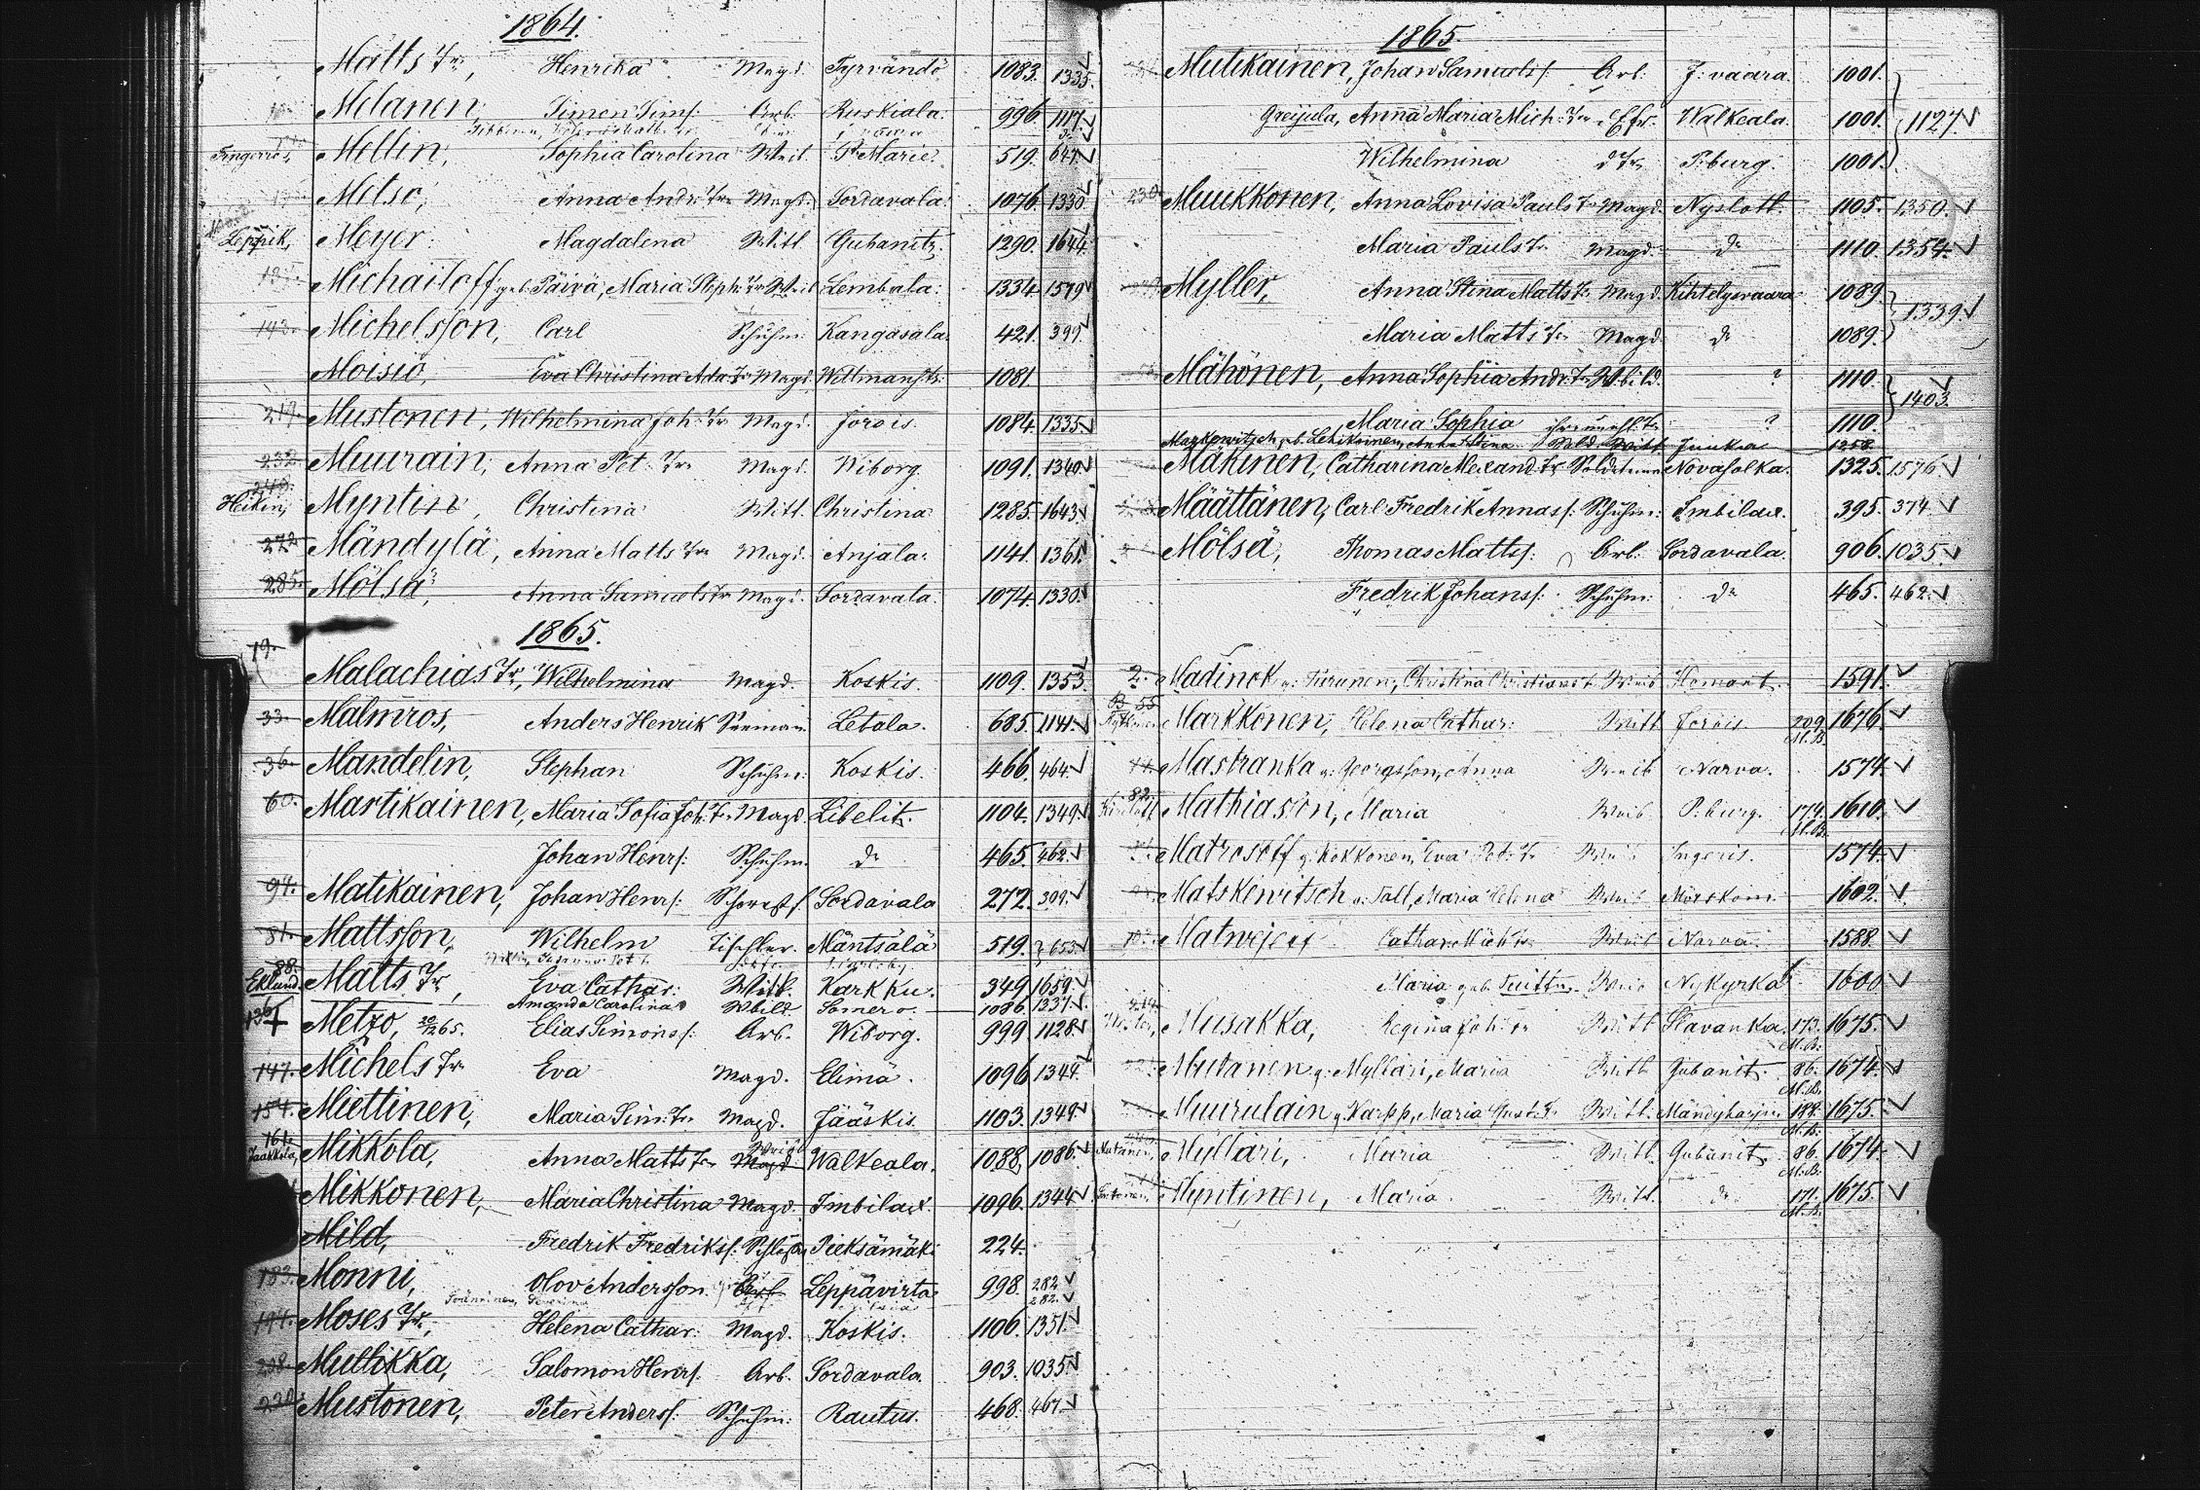 1864.
Matts Tr, Henrika Magd. Tyrvändö 1083. 1335.
Melanen, Simon Sims: Arb. Ruskiala. 996 1117.
Mellin, Sophia Carolina Weib. St Marie. 519. 647.
Metso, Anna Andr: Tr Magd. Sordavala. 1076. 1330
Leppik, Meyer. Magdalena Witt Gubanitz. 1290. 1644.
Michailoff geb. Päivä, Maria Steph: Tr Weib Lembala. 1334 1579
193. Michelsson, Carl Schuhm. Kangasala. 421. 399.
Moisio, Eva Christina Ada: Tr Magd. Willmanstr. 1081
217. Mustonen, Wilhelmina Joh: Tr Magd. Jorois. 1084. 1335
232. Muurain, Anna Pet: Tr Magd. Wiborg. 1091. 1340
Heikin, Myntin, Christina Witt. Christina 1285. 1643.
272 Mändylä, Anna Matts Tr Magd. Anjala. 1141. 1361.
285. Mölsä, Anna Samuels Tr Magd. Sordavala. 1074. 1330.
1865.
19. Malachias Tr, Wilhelmina Magd. Koskis. 1109. 1353.
33. Malmros, Anders Henrik Seemann. Letala. 685. 1141.
36. Mandelin, Stephan Schuhm: Koskis. 466. 464.
60. Martikainen, Maria Sofia Joh: Tr Magd. Libelitz. 1104. 1349.
Johan Henrs: Schuhm. do 465. 462.
94. Matikainen, Johan Henrs: Schornsts. Sordavala 272. 309.
81. Mattsson, Wilhelm Tischler. Mäntsälä 519. 653.
88. Eklund Matts Tr, Eva Cathar: Witt. Karkku. 349 1659.
Amanda Carolina Wbild. Somero. 1086. 1337.
136 Metzo, 20/12 65. Elias Simons: Arb. Wiborg. 999. 1128.
147. Michels Tr Eva Magd. Elimä. 1096 1344.
154. Miettinen, Maria Sim: Tr Magd. Jääskis. 1103. 1349.
161. Jaakkola, Mikkola, Anna Matts Tr Magd Weib Walkeala. 1088. 1086.
Mikkonen, Maria Christina Magd. Imbilax. 1096. 1344
Mild, Fredrik Fredrikss: Schlosser Pieksämäki. 224.
183. Monni, Olov Andersson. Arb Leppävirta 998. 282
282.
191. Moses Tr, Helena Cathar: Magd. Koskis. 1106. 1351.
208. Mullikka, Salomon Henrs. Arb. Sordavala. 903. 1035
220. Mustonen, Peter Anderss: Schuhm: Rautus. 468. 467.
1865.
Mutikainen, Johan Samuels: Arb: J:vaara. 1001.
Greijula, Anna Maria Mich: Tr Efr. Walkeala. 1001. 1127
Wilhelmina d Tr P:burg. 1001.
230. Muukkonen, Anna Lovisa Pauls Tr Magd. Nyslott. 1105. 1350.
Maria Pauls Tr Magd. do 1110. 1354.
Myller, Anna Stina Matts Tr Magd. Kihtelysvaara 1089.
Maria Matts Tr Magd do 1089. 1339.
Mähönen, Anna Sophia Andr: Tr Wbild. ? 1110.
Maria Sophia ihre unehl. Tr ? 1110. 1403.
Markowitsch geb. Lehikoinen, Anna Stina Sold. Witt Junka 1258.
Mäkinen, Catharina Alexand: Tr Novasolka. 1325. 1576
Määttänen, Carl Fredrik Annas s: Schuhm: Imbilax. 395. 374
Mölsä, Thomas Matts: Arb: Sordavala. 906. 1035
Fredrik Johans: Schuhm: do 465. 462.
2. Madinok g: Turunen, Christina Weib Ilomant. 1591.
55 Markkonen, Helena Cathar: Witt Jorois 209. M.B. 1676.
Mastranka g: Georgsson, Anna Weib Narva. 1574.
82. Mathiason, Maria Weib P:burg. 174. M.B. 1610.
Matrosoff g: Kokkonen, Eva Pet: Tr Weib Ingeris. 1574.
Matskewitsch g: Tall, Maria Helena Weib Mörskom. 1602.
Matwejeff Cathar: Mich Tr Weib Narva 1588.
Maria geb. Tuittu Weib Nykyrka 1600
Musakka, Regina Joh: Tr Witt Slavanka. 173. M.B. 1675.
Mutanen g: Myllari, Maria Witt Gubanitz. 86. M.B. 1674.
Muurulain g: Karpp, Maria Gust: Tr Witt. Mändyharju 188. M.B. 1675.
Mutanen, Myllari, Maria Witt. Gubanitz 86. M.B. 1674.
Myntinen, Maria Witt. do 171. M.B. 1675.